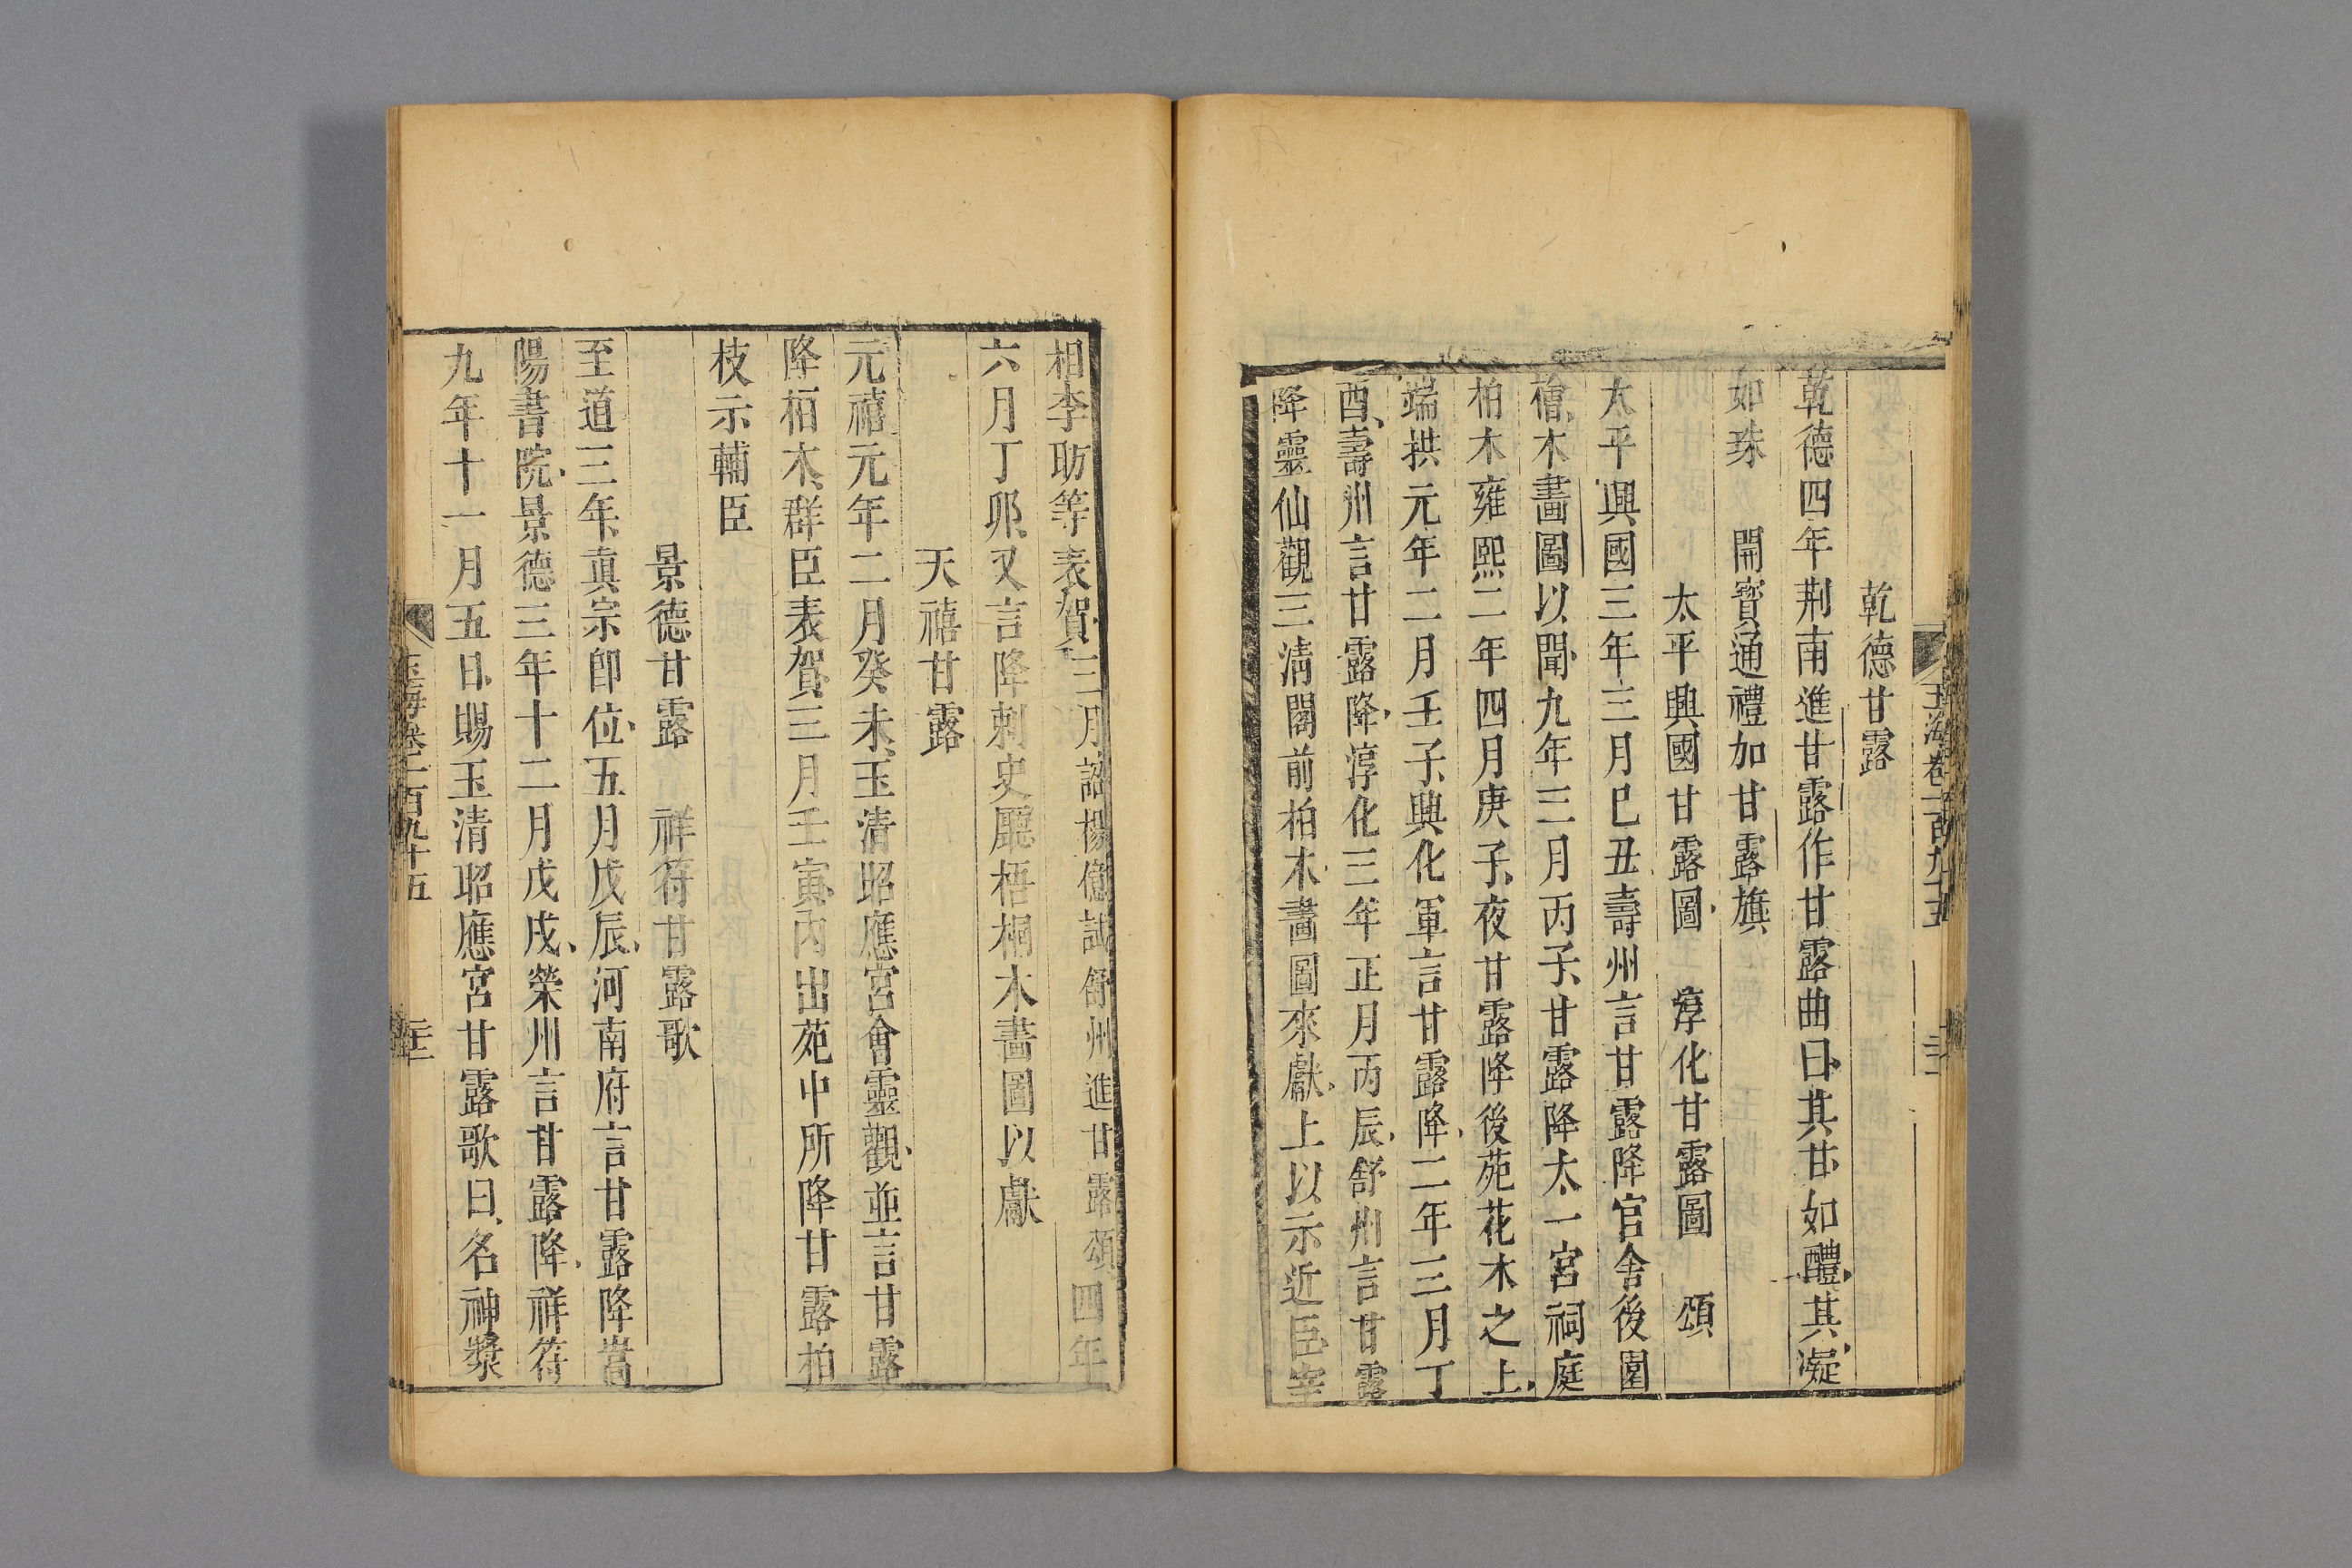 玉海卷一百九十五
乾德甘露
乾德四年荆南進甘露作甘露曲曰其甘如醴其凝
如珠 開寳通禮加甘露旗
太平興國甘露圖 淳化甘露圖 頌
太平興國三年三月巳丑壽州言甘露降官舍後園
檜木畫圖以聞九年三月丙子甘露降太一宮祠庭
柏木雍熙二年四月庚子夜甘露降後苑花木之上
端拱元年二月壬子興化軍言甘露降二年三月丁
酉壽州言甘露降淳化三年正月丙辰舒州言甘露
降靈仙觀三清閣前柏木畫圖來獻上以示近臣宰
相李昉等表賀三月詔楊億試舒州進甘露頌四年
六月丁卯又言降刺史廳梧桐木畫圖以獻
天禧甘露
元禧元年二月癸未玉清昭應宮會靈觀並言甘露
降栢木群臣表賀三月壬寅内出苑中所降甘露柏
枝示輔臣
景德甘露 祥符甘露歌
至道三年真宗卽位五月戊辰河南府言甘露降嵩
陽書院景德三年十二月戊戌榮州言甘露降祥符
九年十一月五日賜玉清昭應宮甘露歌曰名神漿
玉海卷一百九十五